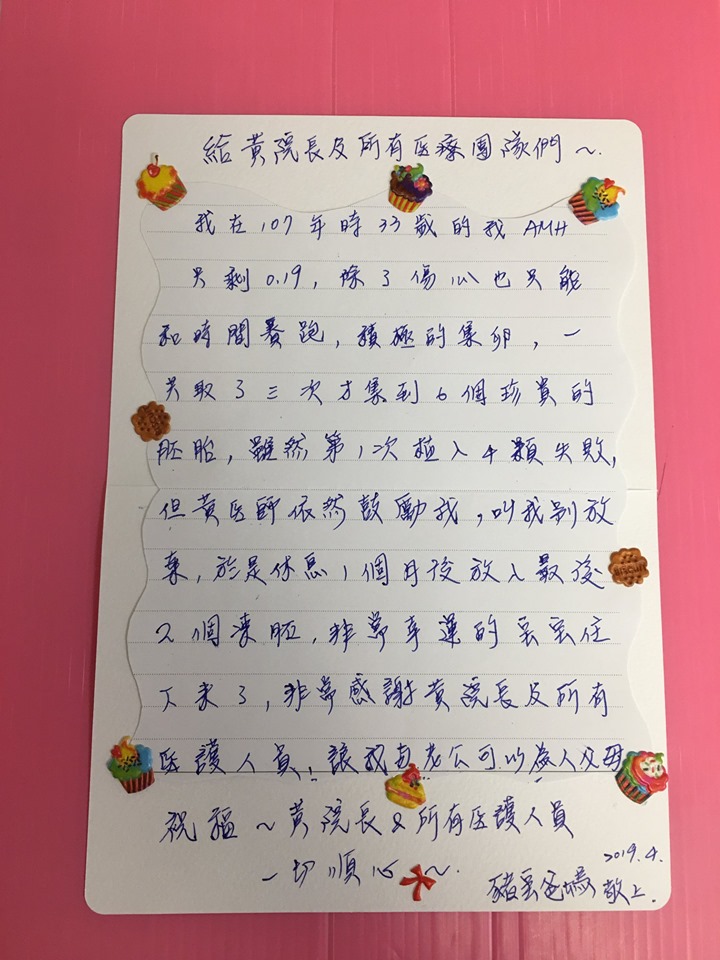 給黃院長及所有医療團隊們～.
我在107年時33歲的我 AMH
只剩0.19, 除了傷心也只能
和時間賽跑, 積極的集卵, 一
共取了三次才集到6個珍貴的
胚胎, 雖然第1次植入4顆失敗,
但黃医師依然鼓勵我, 叫我別放
棄, 於是休息1個月後放入最後
2個凍胚, 非常幸運的寶寶住
下來了, 非常感謝黃院長及所有
医護人員, 讓我與老公可以為人父母
祝福～黃院長&所有医護人員
一切順心～.
2019.4.
豬寶爸媽 敬上.
BISCUIT